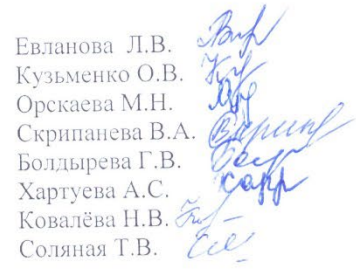 Евланова Л.В.
Кузьменко О.В.
Орскаева М.Н.
Скрипанева В.А.
Болдырева Г.В.
Хартуева А.С.
Ковалёва Н.В.
Соляная Т.В.